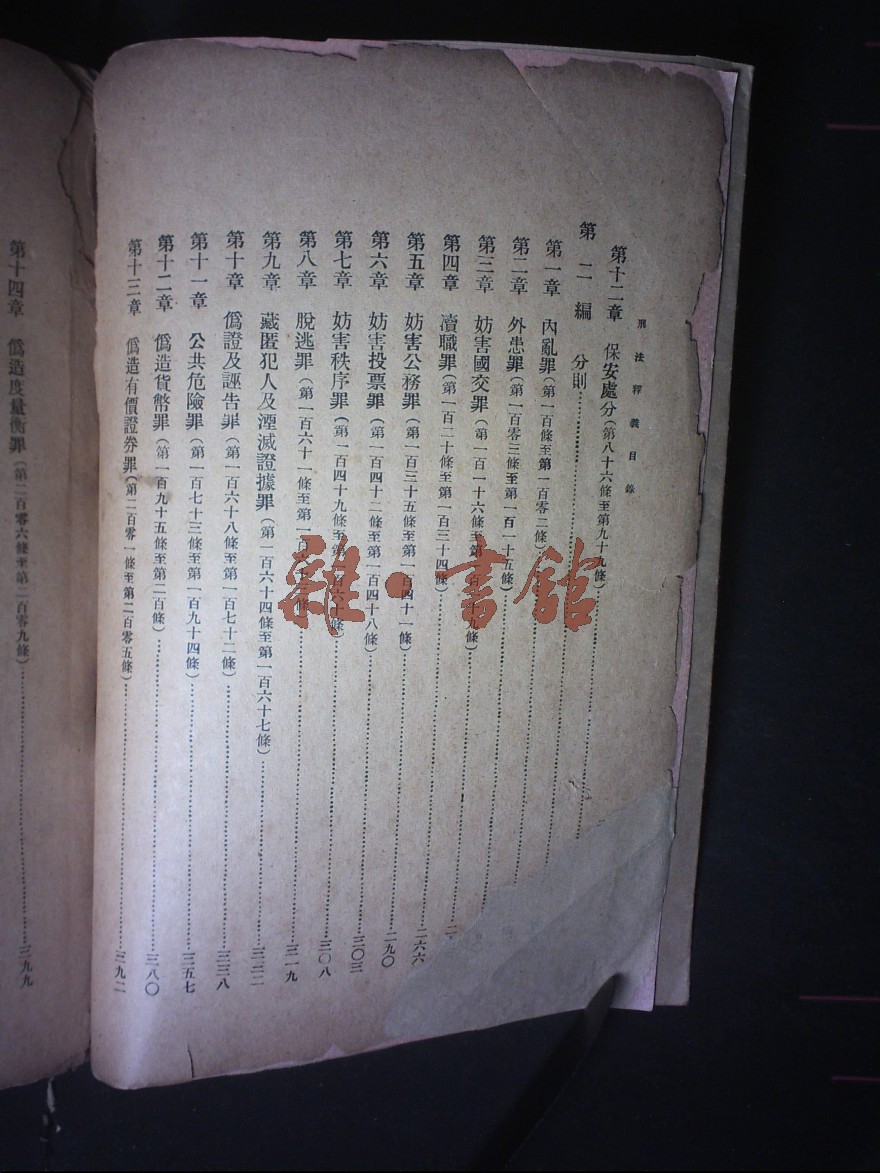 刑法釋義目錄
第十二章 保安處分(第八十六條至第九十九條)
第二編 分則
第一章 內亂罪(第一百條至第一百零二條)
第二章 外患罪(第一百零三條至第一百一十五條)
第三章 妨害國交罪(第一百一十六條至第一百一十九條)
第四章 瀆職罪(第一百二十條至第一百三十四條)
第五章 妨害公務罪(第一百三十五條至第一百四十一條)二六六
第六章 妨害投票罪(第一百四十二條至第一百四十八條)二九〇
第七章 妨害秩序罪(第一百四十九條至第一百六十條)三〇三
第八章 脫逃罪(第一百六十一條至第一百六十三條)三〇八
第九章 藏匿犯人及湮滅證據罪(第一百六十四條至第一百六十七條)三一九
第十章 僞證及誣告罪(第一百六十八條至第一百七十二條)三二二
第十一章 公共危險罪(第一百七十三條至第一百九十四條)三三八
第十二章 僞造貨幣罪(第一百九十五條至第二百條)三五七
第十三章 僞造有價證券罪(第二百零一條至第二百零五條)三八〇
三九二
第十四章 僞造度量衡罪(第二百零六條至第二百零九條)三九九
雜·書館